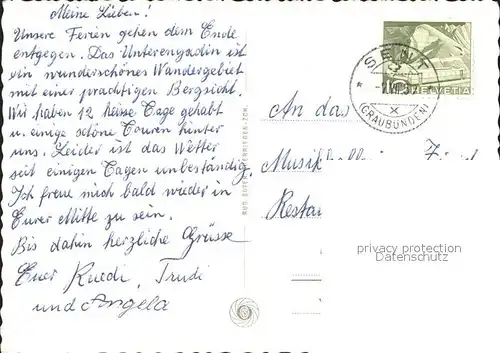 Meine Lieben!
Unsere Ferien gehen dem Ende
entgegen. Das Unterengadin ist
ein wunderschönes Wandergebiet
mit einer prächtigen Bergsicht.
Wir haben 12 heisse Tage gehabt
u. einige schöne Touren hinter
uns. Leider ist das Wetter
seit einigen Tagen unbeständig.
Ich freue mich bald wieder in
Eurer Mitte zu sein.
Bis dahin herzliche Grüsse
Euer Ruedi, Trudi
und Angela
HELVETIA
SENT
(GRAUBÜNDEN)
An das
Musik
Restau
privacy protection
Datenschutz